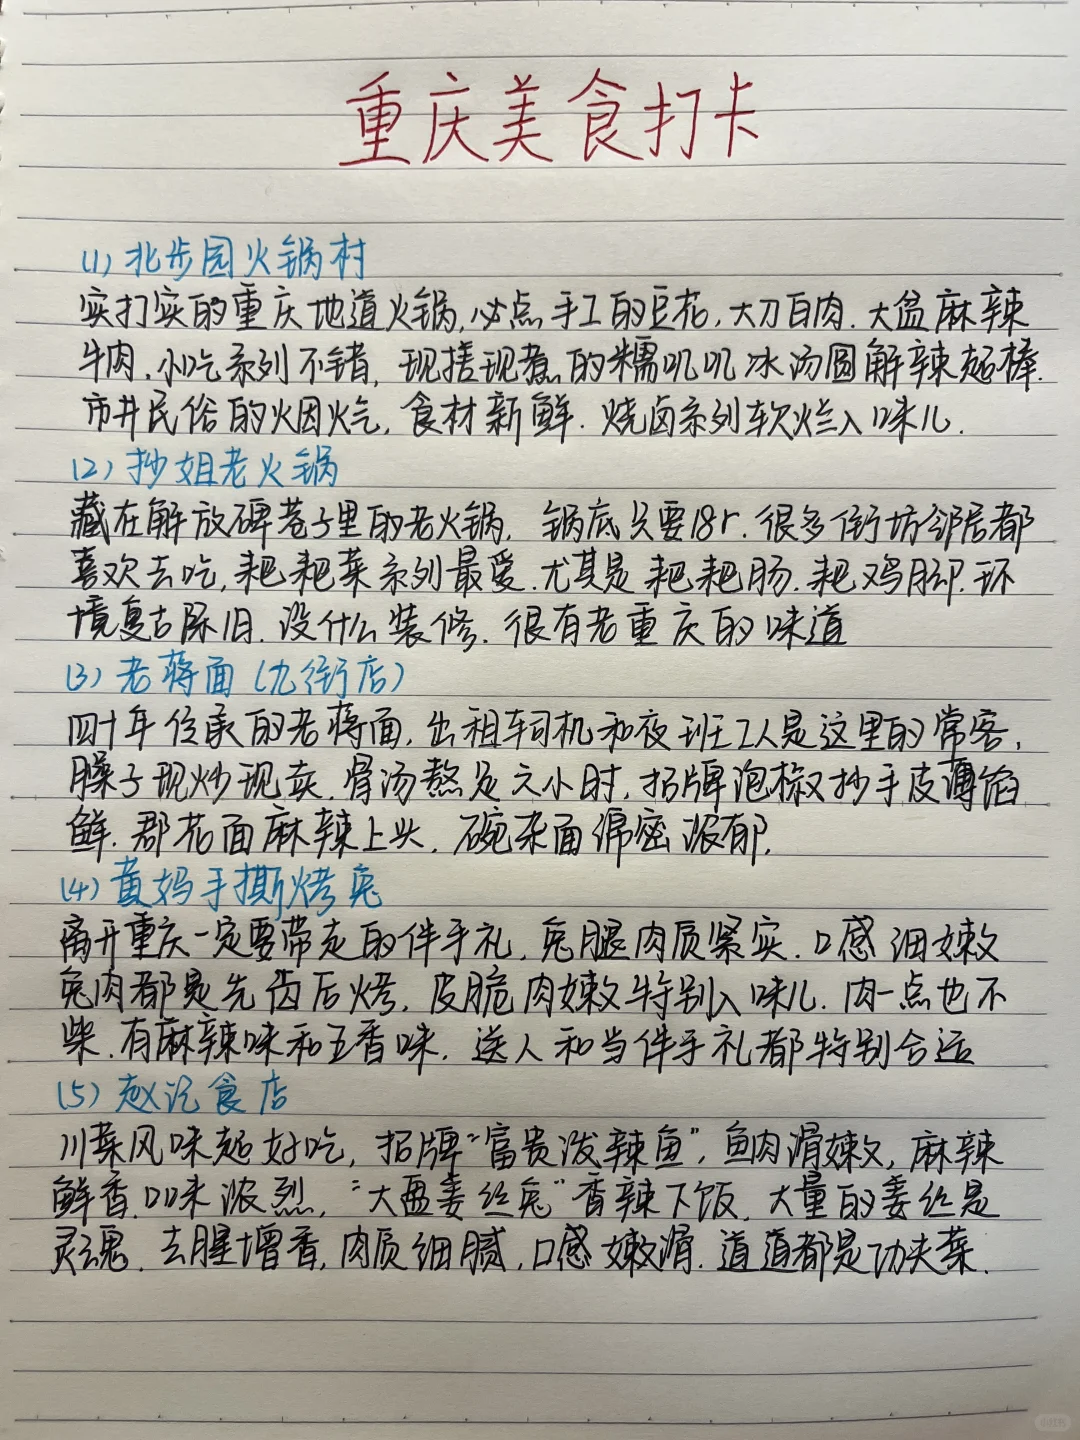 重庆美食打卡
(1) 北步园火锅村
实打实的重庆地道火锅,必点手工的豆花,大刀白肉.大盆麻辣
牛肉.小吃系列不错,现搓现煮的糯叽叽冰汤圆解辣超棒.
市井民俗的火因火气,食材新鲜.烧卤系列软烂入味儿.
(2) 抄姐老火锅
藏在解放碑巷子里的老火锅,锅底只要18r.很多街坊邻居都
喜欢去吃,耙耙菜系列最爱.尤其是耙耙肠.耙鸡脚.环
境复古陈旧.没什么装修.很有老重庆的味道
(3) 老蒋面(九街店)
四十年传承的老蒋面,出租车司机和夜班工人是这里的常客,
臊子现炒现卖.骨汤熬足六小时,招牌泡椒抄手皮薄馅
鲜.郡花面麻辣上头,碗杂面绵密浓郁,
(4) 黄妈手撕烤兔
离开重庆一定要带走的伴手礼,兔腿肉质紧实.口感细嫩
兔肉都是先卤后烤,皮脆肉嫩特别入味儿.肉一点也不
柴.有麻辣味和五香味.送人和当伴手礼都特别合适
(5) 赵记食店
川菜风味超好吃,招牌“富贵泼辣鱼”,鱼肉滑嫩,麻辣
鲜香.口味浓烈,“大盘姜丝兔”香辣下饭,大量的姜丝是
灵魂.去腥增香,肉质细腻,口感嫩滑.道道都是功夫菜.
小红书